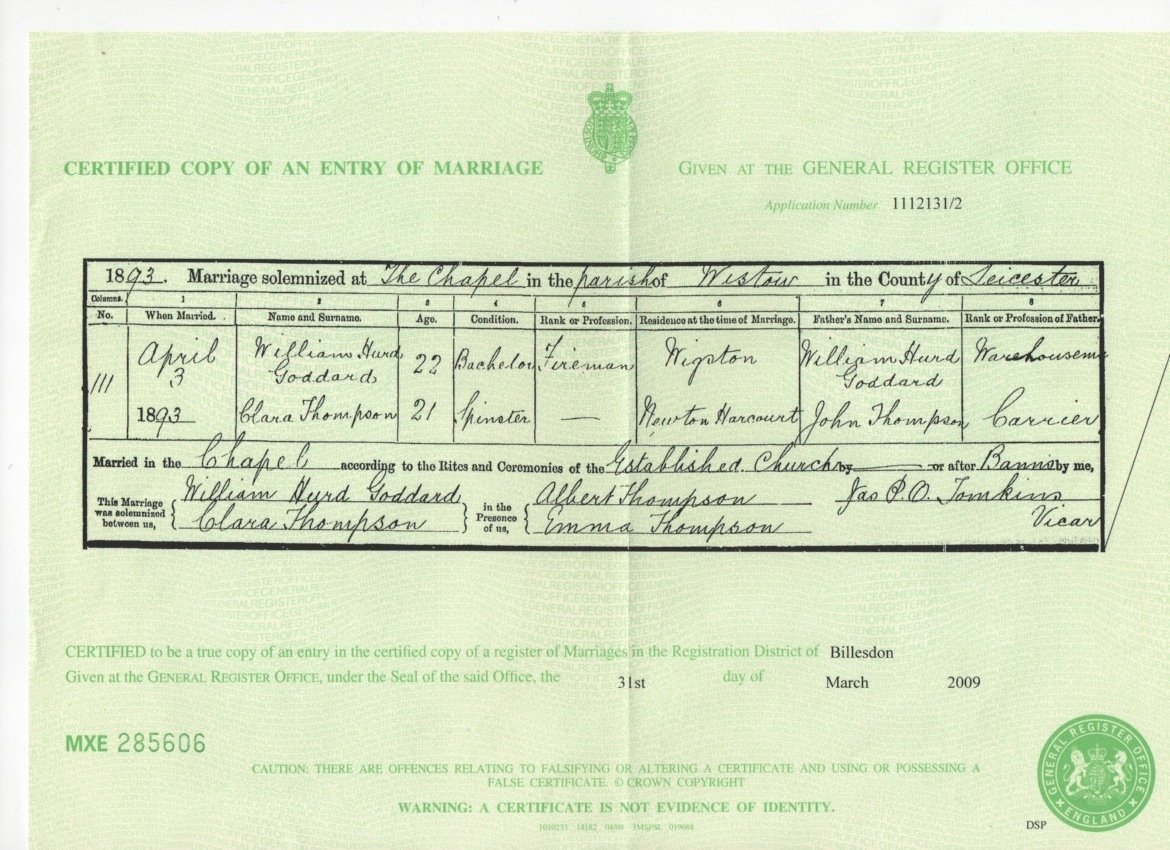 CERTIFIED COPY OF AN ENTRY OF MARRIAGE
GIVEN AT THE GENERAL REGISTER OFFICE
Application Number 1112131/2
1893. Marriage solemnized at The Chapel in the parish of Wistow in the County of Leicester
Columns. 1 2 3 4 5 6 7 8
No. When Married. Name and Surname. Age. Condition. Rank or Profession. Residence at the time of Marriage. Father's Name and Surname. Rank or Profession of Father.
April William Hurd 22 Bachelor Fireman Wigston William Hurd Warehousem
3 Goddard Goddard
111
1893 Clara Thompson 21 Spinster — Newton Harcourt John Thompson Carrier
Married in the Chapel according to the Rites and Ceremonies of the Established Church by — or after Banns by me,
This Marriage was solemnized between us,
William Hurd Goddard
Clara Thompson
in the Presence of us,
Albert Thompson
Emma Thompson
Jas P.O. Tomkins
Vicar
CERTIFIED to be a true copy of an entry in the certified copy of a register of Marriages in the Registration District of Billesdon
Given at the GENERAL REGISTER OFFICE, under the Seal of the said Office, the 31st day of March 2009
MXE 285606
CAUTION: THERE ARE OFFENCES RELATING TO FALSIFYING OR ALTERING A CERTIFICATE AND USING OR POSSESSING A
FALSE CERTIFICATE. © CROWN COPYRIGHT
WARNING: A CERTIFICATE IS NOT EVIDENCE OF IDENTITY.
1010233 14182 04/08 3MSPSL 019688
DSP
GENERAL REGISTER OFFICE
ENGLAND